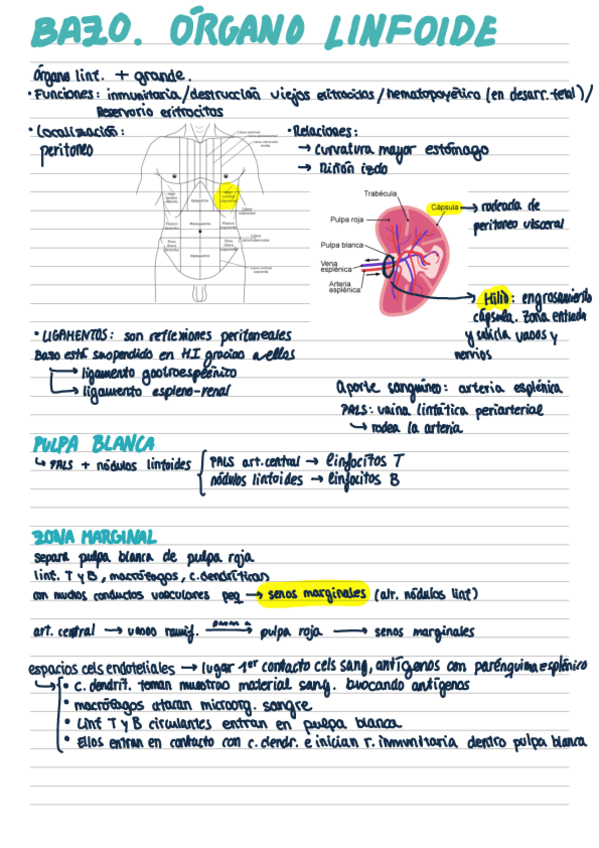 BAZO. ÓRGANO LINFOIDE
Órgano linf. + grande.
• Funciones: inmunitaria/destrucción viejos eritrocitos/hematopoyética (en desarr. fetal)/
Reservorio eritrocitos
• Localización:
peritoneo
• Relaciones:
→ curvatura mayor estómago
→ Riñón izdo
Trabécula
Cápsula → rodeada de
peritoneo visceral
Pulpa roja
Pulpa blanca
Vena
esplénica
Arteria
esplénica
Hilio: engrosamiento
cápsula. Zona entrada
y salida vasos y
nervios
• LIGAMENTOS: son reflexiones peritoneales
Bazo está suspendido en H.I gracias a ellos
→ ligamento gastroesplénico
→ ligamento espleno-renal
Aporte sanguíneo: arteria esplénica
PALS: vaina linfática periarterial
↳ rodea la arteria
PULPA BLANCA
↳ PALS + nódulos linfoides { PALS art.central → linfocitos T
nódulos linfoides → linfocitos B
ZONA MARGINAL
separa pulpa blanca de pulpa roja
linf. T y B, macrófagos, c.dendríticas
con muchos conductos vasculares peq → senos marginales (alr. nódulos linf)
art. central → vasos ramif. → pulpa roja → senos marginales
espacios cels endoteliales → lugar 1er contacto cels sang, antígenos con parénquima esplénico
• c. dendrít. toman muestras material sang. buscando antígenos
• macrófagos atacan microorg. sangre
• Linf T y B circulantes entran en pulpa blanca
• Ellos entran en contacto con c.dendr. e inician r. inmunitaria dentro pulpa blanca